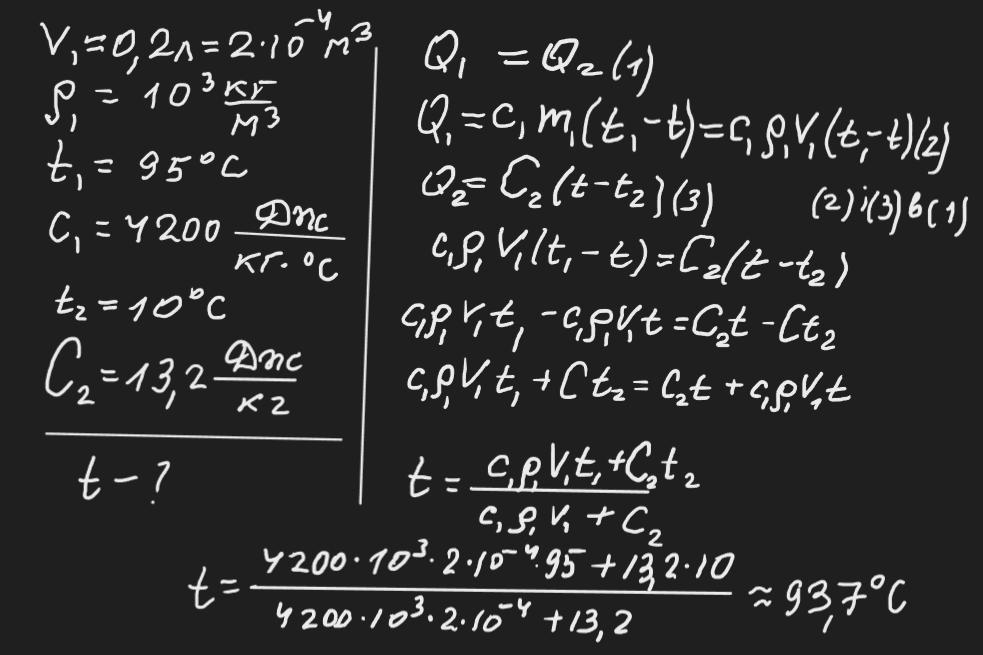 V₁=0,2л=2·10⁻⁴м³
ρ₁ = 10³ кг/м³
t₁ = 95°C
c₁ = 4200 Дж/кг·°C
t₂ = 10°C
C₂ = 13,2 Дж/кг
t - ?
Q₁ = Q₂ (1)
Q₁ = c₁m₁(t₁-t) = c₁ρ₁V₁(t₁-t) (2)
Q₂ = C₂(t-t₂) (3) (2) і (3) в (1)
c₁ρ₁V₁(t₁-t) = C₂(t-t₂)
c₁ρ₁V₁t₁ - c₁ρ₁V₁t = C₂t - Ct₂
c₁ρ₁V₁t₁ + Ct₂ = C₂t + c₁ρ₁V₁t
t = (c₁ρ₁V₁t₁+C₂t₂)/(c₁ρ₁V₁ + C₂)
t = (4200·10³·2·10⁻⁴·95+13,2·10)/(4200·10³·2·10⁻⁴+13,2) ≈ 93,7°C